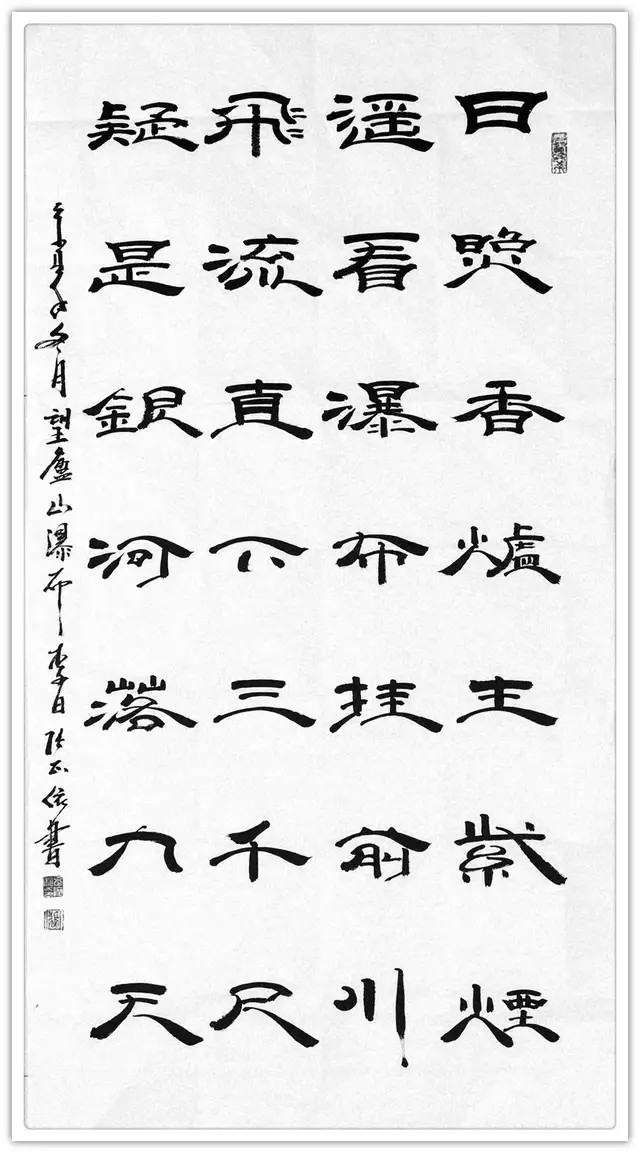 日照香爐生紫煙
遥看瀑布挂前川
飛流直下三千尺
疑是銀河落九天
年冬月望廬山瀑布李白 書